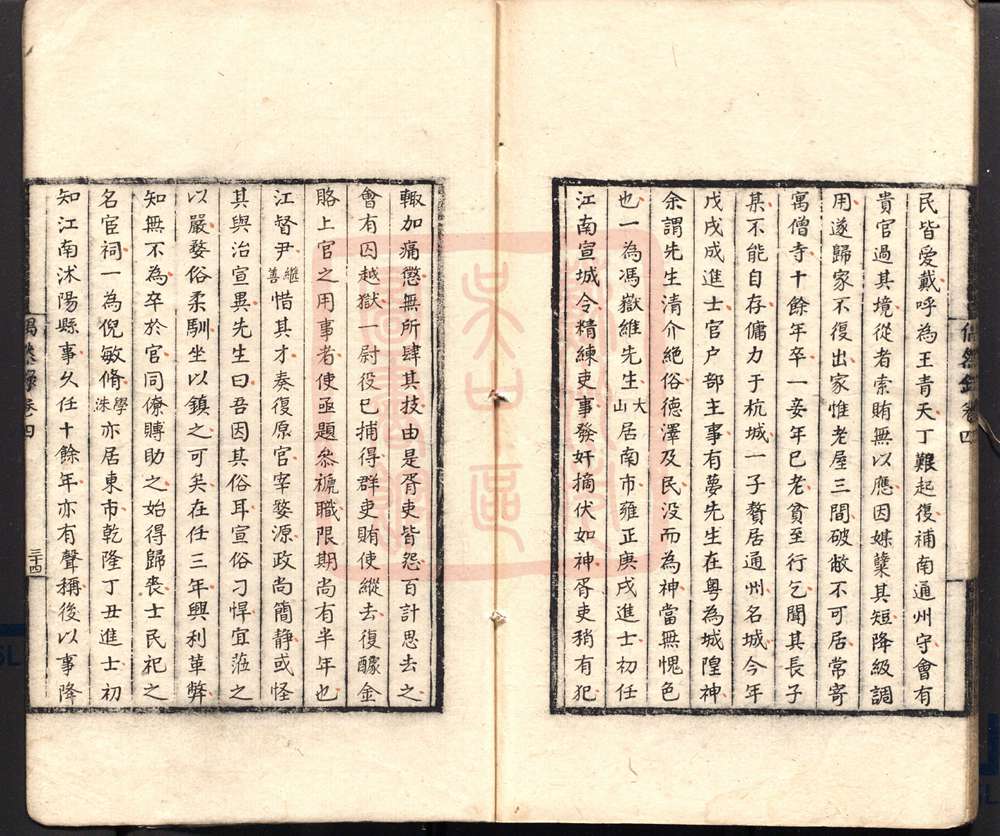 偶然錄卷四
民皆愛戴呼為王青天丁艱起復補南通州守會有
貴官過其境從者索賄無以應因媒糱其短降級調
用遂歸家不復出家惟老屋三間破敝不可居常寄
寓僧寺十餘年卒一妾年已老貧至行乞聞其長子
某不能自存傭力于杭城一子贅居通州名城今年
戊戌成進士官户部主事有夢先生在粤為城隍神
余謂先生清介絶俗德澤及民没而為神當無愧色
也一為馮嶽維先生大山居南市雍正庚戌進士初任
江南宣城令精練吏事發奸摘伏如神胥吏稍有犯
輙加痛懲無所肆其技由是胥吏皆怨百計思去之
會有囚越獄一尉役已捕得群吏賄使縱去復醵金
賂上官之用事者使亟題叅褫職限期尚有半年也
江督尹繼善惜其才奏復原官宰婺源政尚簡静或怪
其與治宣異先生曰吾因其俗耳宣俗刁悍宜蒞之
以嚴婺俗柔馴坐以鎮之可矣在任三年興利革弊
知無不為卒於官同僚賻助之始得歸喪士民祀之
名宦祠一為倪敏脩學洙亦居東市乾隆丁丑進士初
知江南沭陽縣事久任十餘年亦有聲稱後以事降
偶然錄卷四
三十四